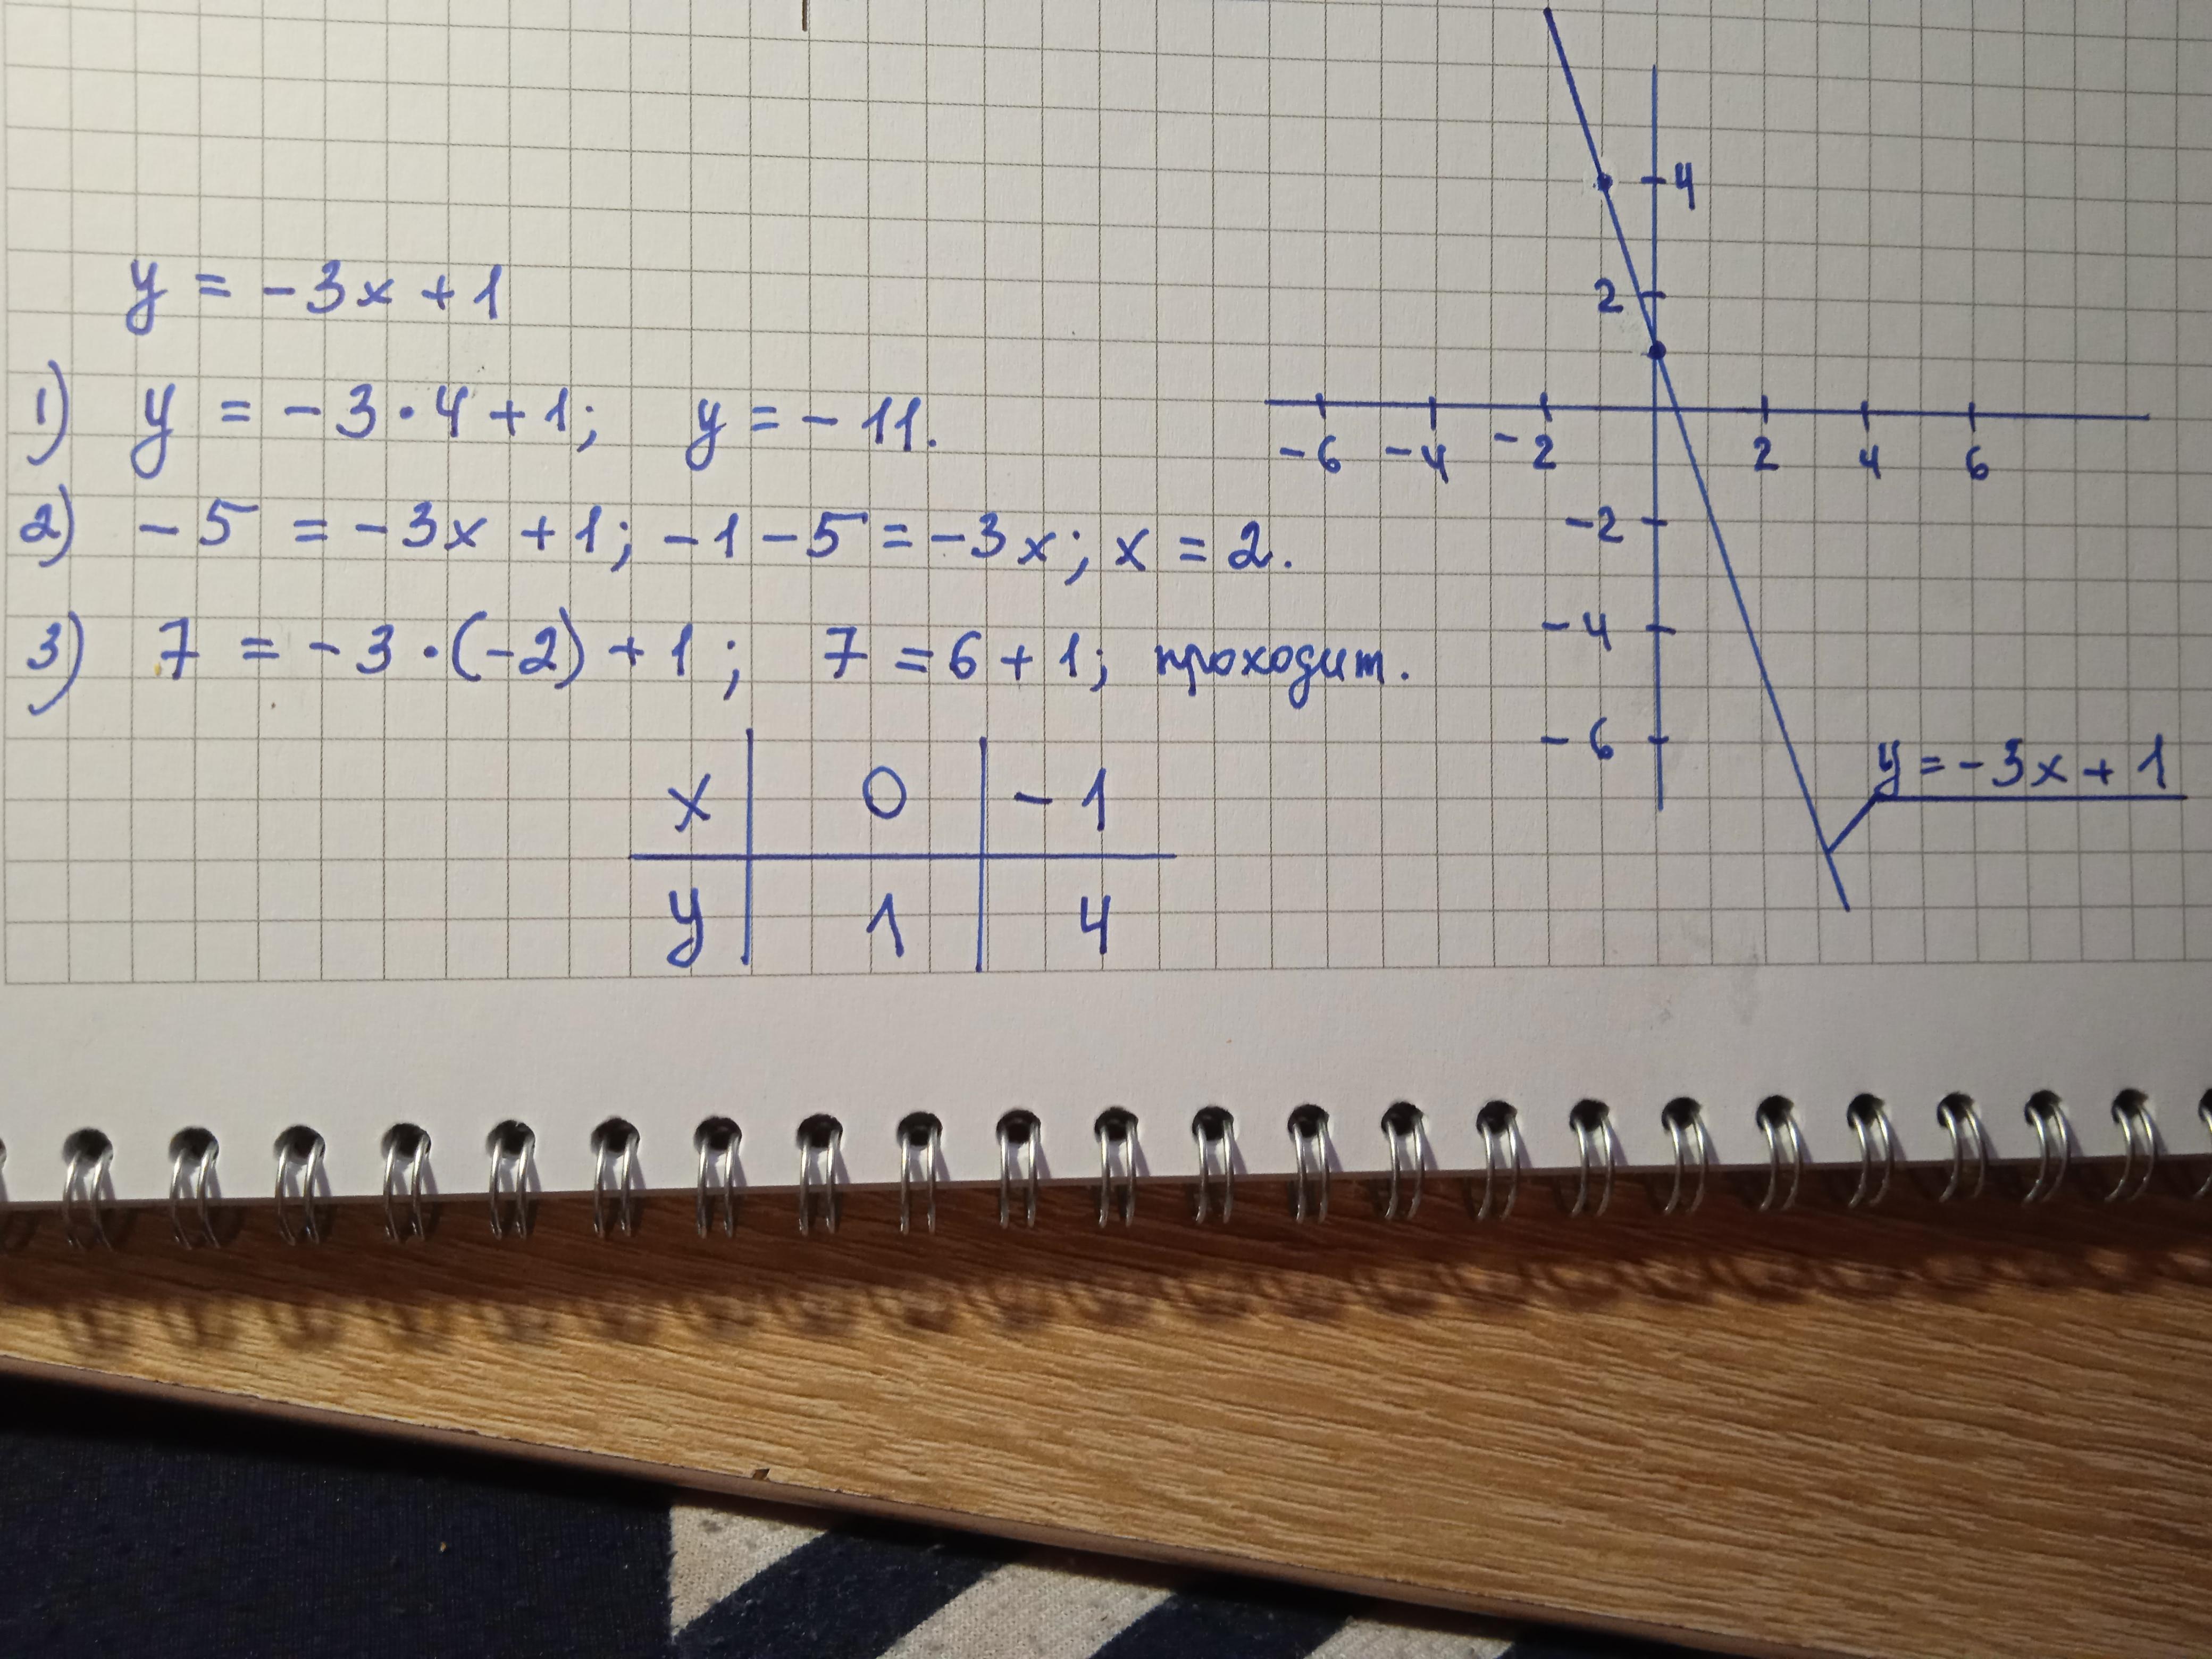 y = -3x + 1
1) y = -3·4+1; y = -11.
2) -5 = -3x +1; -1-5=-3x; x = 2.
3) 7 = -3·(-2)+1; 7=6+1; проходит.
x 0 -1
y 1 4
4
2
-6 -4 -2 2 4 6
-2
-4
-6
y=-3x+1